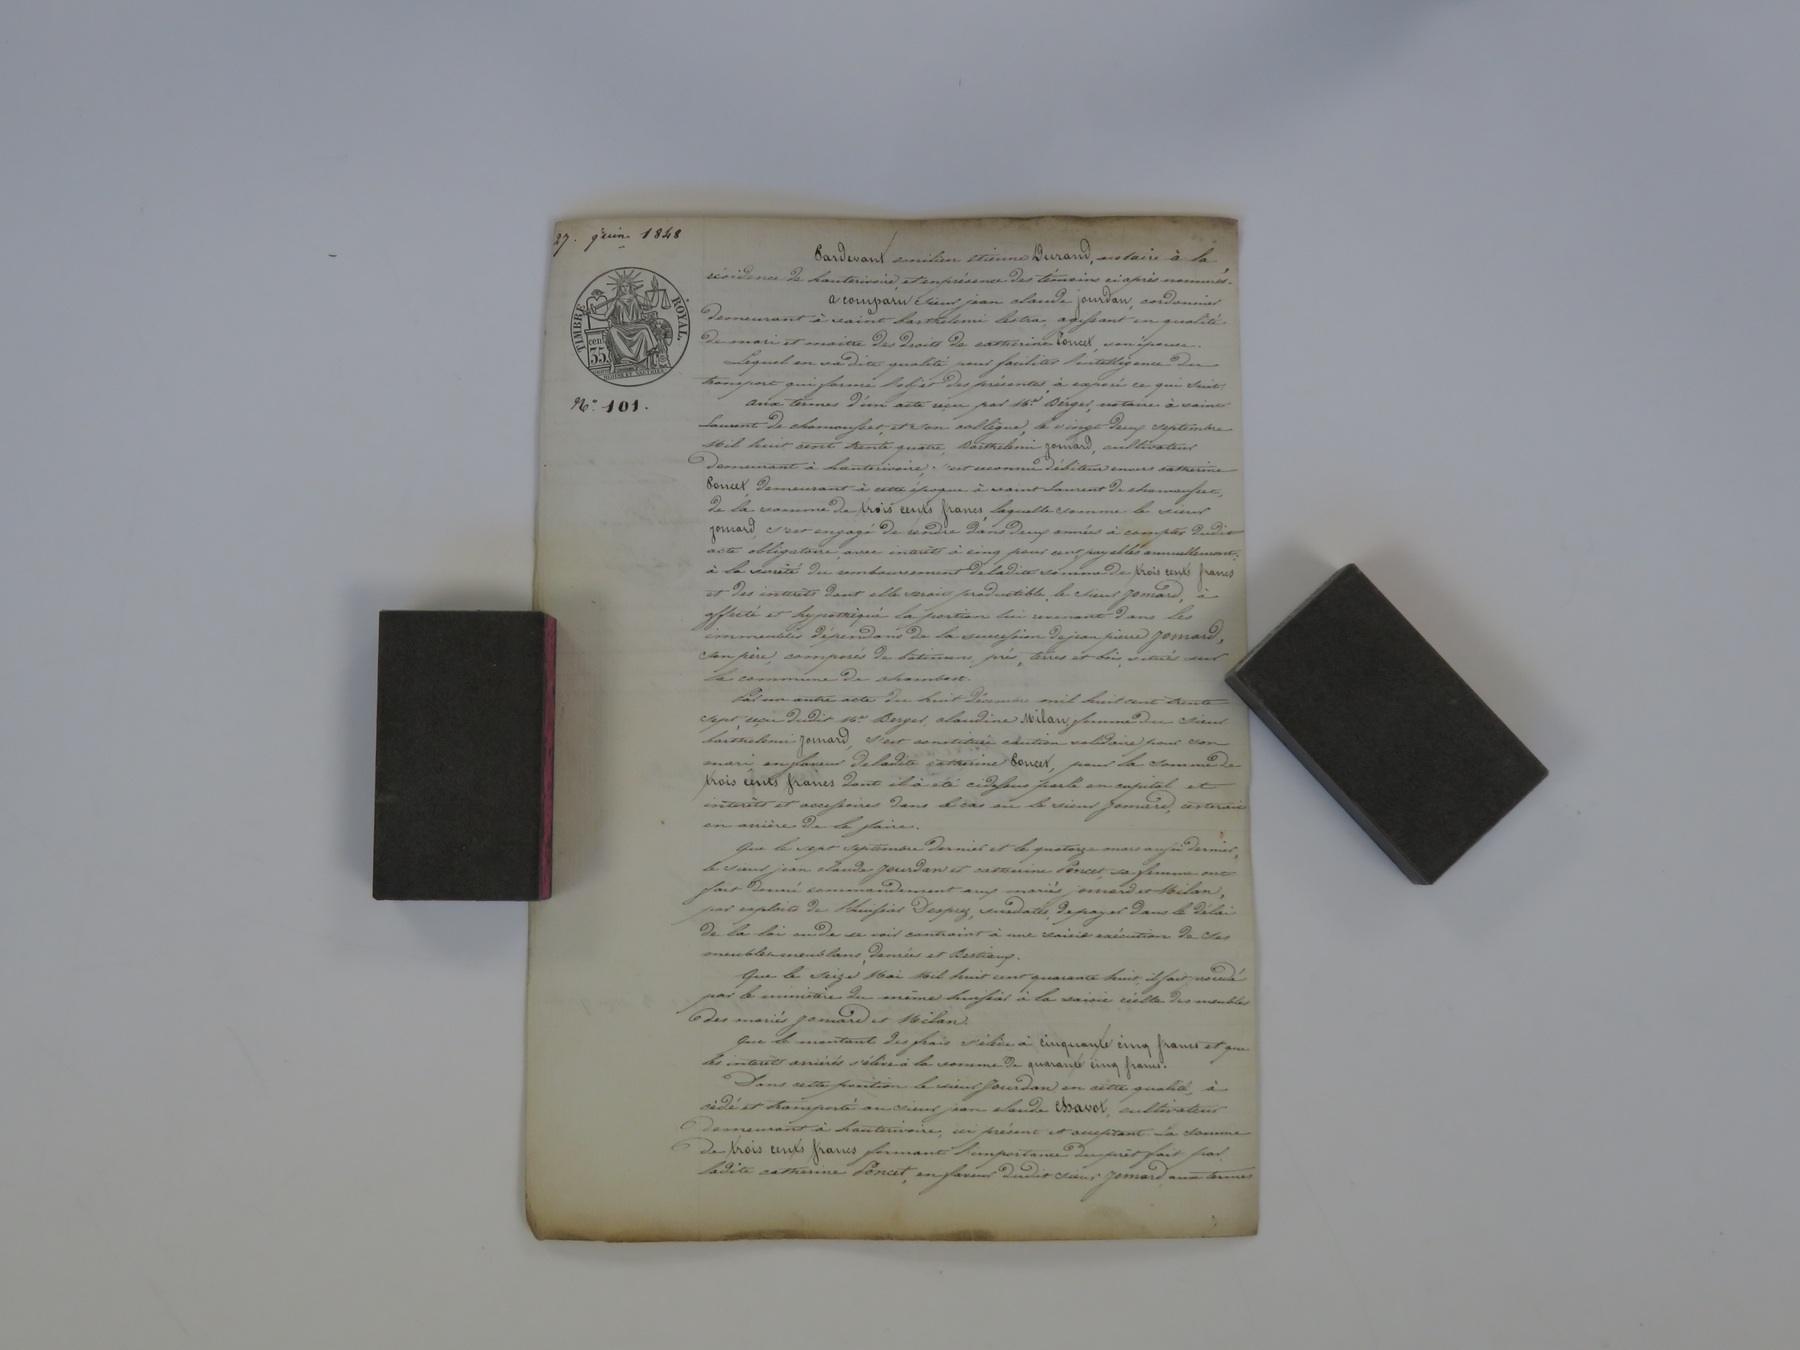 27. juin 1848
TIMBRE ROYAL
cent
35
N.º 101.
Pardevant emilien etienne Durand, notaire à la
résidence de hauterivoire, et en présence des témoins ci après nommés.
a comparu sieur jean claude jourdan, cordonnier
demeurant à saint barthelemi lestra, agissant en qualité
de mari et maitre des droits de catherine Poncet, son épouse.
Lequel en sa dite qualité pour faciliter l'intelligence du
transport qui forme l'objet des présentes, à exposé ce qui suit:
aux termes d'un acte reçu par Me Berger, notaire à saint
Laurent de chamousset, et son collègue, le vingt deux septembre
Mil huit cent trente quatre, Barthelemi jomard, cultivateur
demeurant à hauterivoire, s'est reconnu débiteur envers catherine
Poncet, demeurant à cette époque à saint Laurent de chamousset,
de la somme de trois cents francs, laquelle somme le sieur
jomard, s'est engagé de rendre dans deux années à compter dudit
acte obligatoire, avec intérêts à cinq pour cent, payables annuellement.
à la sureté du remboursement de ladite somme de trois cents francs
et des intérêts dont elle serait productible, le sieur jomard, à
affecté et hypothéqué la portion lui revenant dans les
immeubles dépendans de la succession de jean pierre jomard,
son père, composés de bâtimens, prés, terres et bois, situés sur
la commune de chambost.
Par un autre acte du huit décembre mil huit cent trente
sept, reçu dudit Me Berger, claudine Milan, femme du sieur
barthelemi jomard, s'est constituée caution solidaire pour son
mari, en faveur de ladite catherine Poncet, pour la somme de
trois cents francs dont il à été ci dessus parlé en capital et
intérêts et accessoires dans le cas ou le sieur jomard, resterait
en arrière de le faire.
Que le sept septembre dernier et le quatorze mars aussi dernier,
le sieur jean claude jourdan et catherine Poncet, sa femme ont
fait donné commandement aux mariés jomard et Milan,
par exploits de l'huissier Desprez, susdatés, de payer dans le délai
de la loi ou de se voir contraint à une saisie exécution de ses
meubles meublans, denrées et Bestiaux.
Que le seize Mai Mil huit cent quarante huit, il fut procédé
par le ministère du même huissier à la saisie réelle des meubles
des mariés jomard et Milan.
Que le montant des frais s'élève à cinquante cinq francs et que
les intérêts arriérés s'élève à la somme de quarante cinq francs.
Dans cette position le sieur jourdan en cette qualité, à
cédé et transporté au sieur jean claude Chavot, cultivateur
demeurant à hauterivoire, ici présent et acceptant la somme
de trois cents francs formant l'importance du prêt fait par
ladite catherine Poncet, en faveur dudit sieur jomard, aux termes